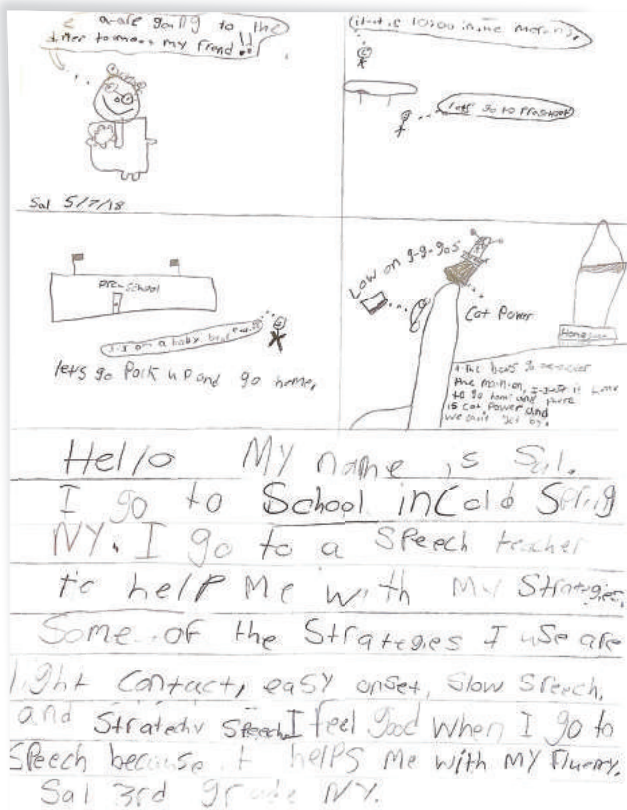 a-are going to the
to my frend!!
10:00 in the
lets go to Preschool
Sal 5/7/18
Pre-School
I-I am a baby
lets go Pack up and go home.
Low on g-g-gas
Cat Power
the
to go home and there
is Cat Power and
we can't get by.
Hello MY name is Sal.
I go to School in Cold Spring
NY. I go to a speech teacher
to help Me with My Strategies.
Some of the Strategies I use are
light Contact, easy onset, Slow speech,
and Strategy Speech I feel good when I go to
Speech because it helps Me with My Fluency.
Sal 3rd grade NY.